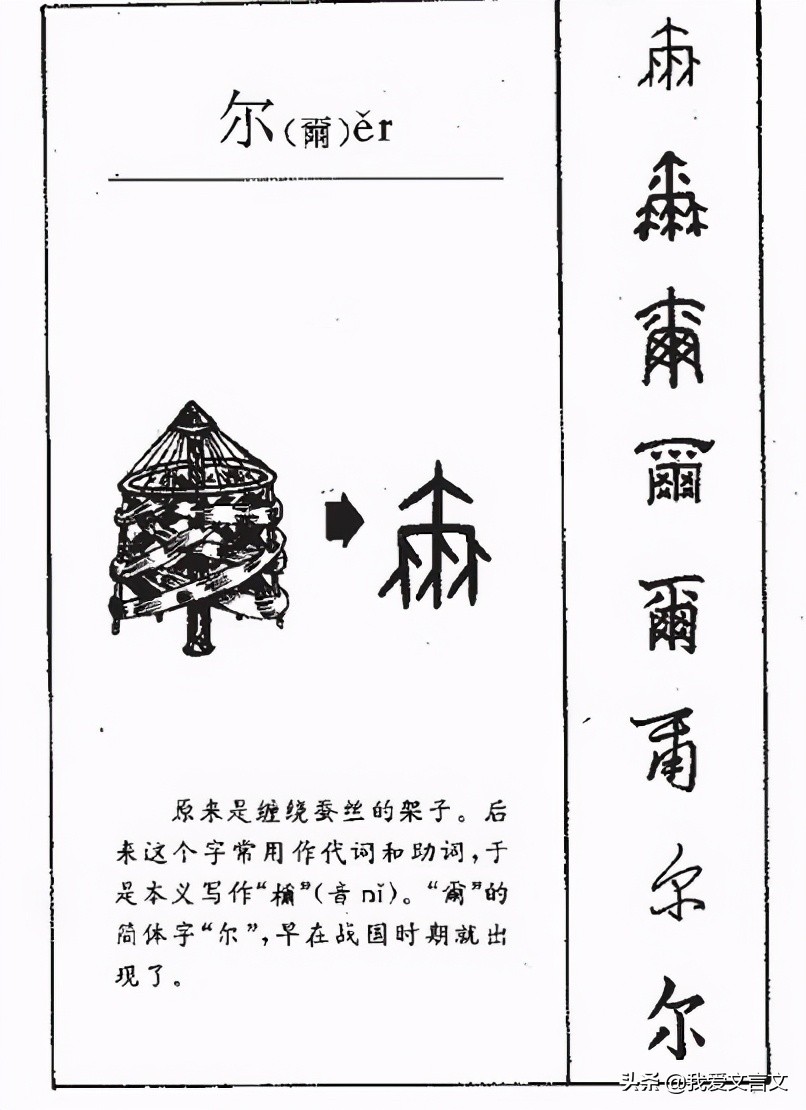 尔(爾)ěr
原来是缠绕蚕丝的架子。后
来这个字常用作代词和助词,于
是本义写作“檷”(音 nǐ)。“爾”的
简体字“尔”,早在战国时期就出
现了。
爾
爾
尔
尔
头条 @我爱文言文